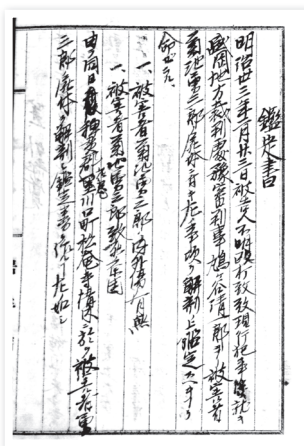 鑑定書
明治廿三年一月廿二日被告人不明殴打致死現行犯事件ニ就キ
盛岡地方裁判所豫審判事鵜ヶ谷清一郎ヨリ被害者
菊池重三郎ノ死体ニ付キ左ノ事項ヲ解剖上鑑定スヘキヲ
命セラル
一、被害者菊池重三郎ノ内外傷ノ有無
一、被害者菊池重三郎致死ノ原因
由テ同日稗貫郡里川口町松庵寺境内ニ於テ被害者重
三郎ノ死体ヲ解剖シ鑑定書ヲ作ル左ノ如シ